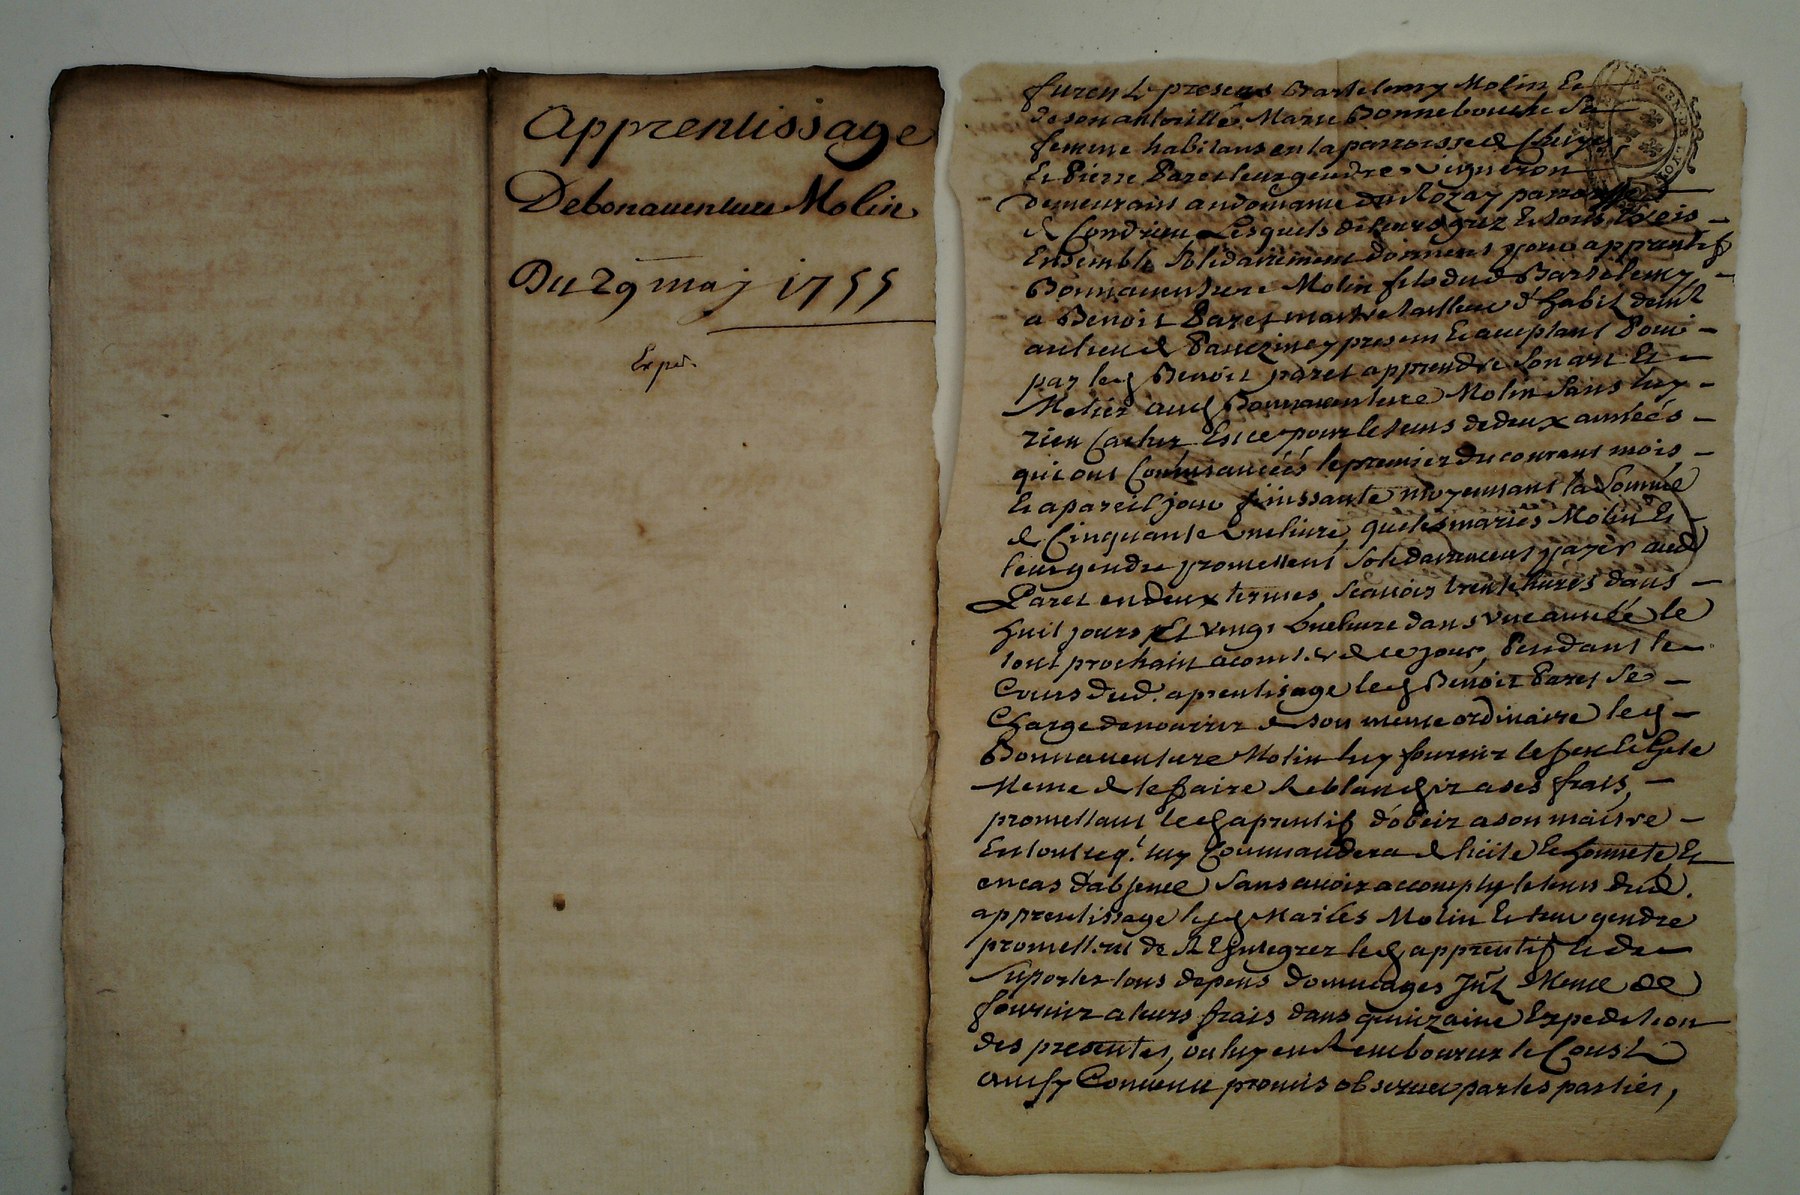 Apprentissage
Debonauenture Molin
Du 29 may 1755
Exped.
furent presens Barthelemy Molin Et
de son authoritté Marie Bonnebouche Sa
femme habitans en la parroisse de
Et Pierre Paret leur gendre vigneron
demeurant au domaine du Rozay parroisse
de Condrieu Lesquels de leurs grez Et sous
Ensemble Solidairement donnent pour apprentif
Bonnauenture Molin fils dud Barthelemy
a Benoit Paret maitre tailleur d'habit demt
au lieu de present Et acceptant Pour
par led Benoit paret apprendre Son art Et
Metier aud Bonnauenture Molin Sans luy
rien Cacher Est ce pour le tems de deux années
qui ont Commancées le premier du courant mois
Et a pareil jour finissante moyennant la Somme
de Cinquante une livre, que les mariés Molin Et
leur gendre promettent Solidairement payer aud
Paret en deux termes, Scauoir trente livres dans
huit jours Et vingt une livre dans vne année le
tout prochain a compter de ce jour, Pendant le
Cours dud. aprentissage led Benoit Paret Se
Charge de nourrir de son meme ordinaire led
Bonnauenture Molin luy fournir le feu Et Gete
Meme de le faire Reblanchir a ses frais,
promettant led aprentif d'obeir a son maistre
En tout ce q. luy Commandera de licite Et honnete, Et
en cas d'absence Sans auoir accomply le tems dud.
apprentissage lesd Mariés Molin Et leur gendre
promettent de REthintegrer led apprentif Et de
Suporter tous depens dommages Jnt. Meme de
fournir a leurs frais dans quinzaine Expedition
des presentes, ou luy en Rembourser le Coust
ainsy Conuenu promis obseruer par les parties,